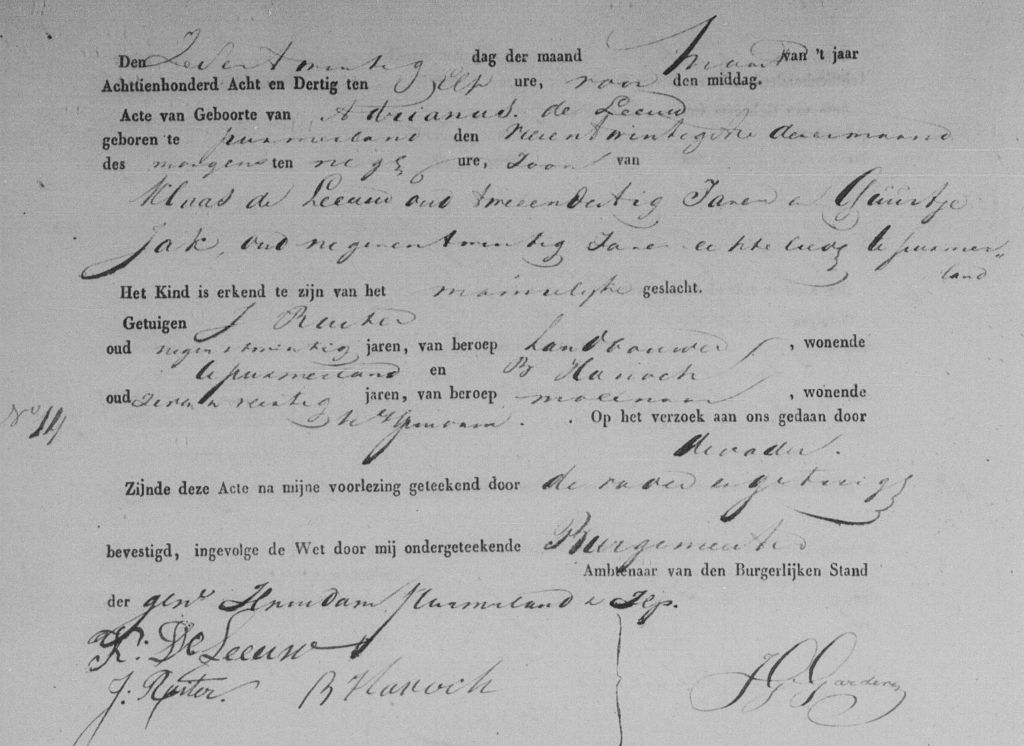 Den Zesentwintig dag der maand Maart van 't jaar
Achttienhonderd Acht en Dertig ten Elf ure, voor den middag.
Acte van Geboorte van Adrianus de Leeuw
geboren te purmerland den vierentwintigste dezer maand
des morgens ten neg ure, Zoon van
Klaas de Leeuw oud tweeendertig Jaren en Guurtje
Jak, oud negenentwintig Jaren echte lieden te purmer„
land
Het Kind is erkend te zijn van het mannelijke geslacht.
Getuigen J Ruiter
oud negenentwintig jaren, van beroep Landbouwer, wonende
te purmerland en B Havoch
oud jaren, van beroep molenaar, wonende
te . Op het verzoek aan ons gedaan door
de vader.
No 14
Zijnde deze Acte na mijne voorlezing geteekend door de vader en getuig
bevestigd, ingevolge de Wet door mij ondergeteekende Burgemeester
Ambtenaar van den Burgerlijken Stand
der gem Purmerland & Ilp.
K: De Leeuw
J. Ruiter. B Havoch JG Garderen